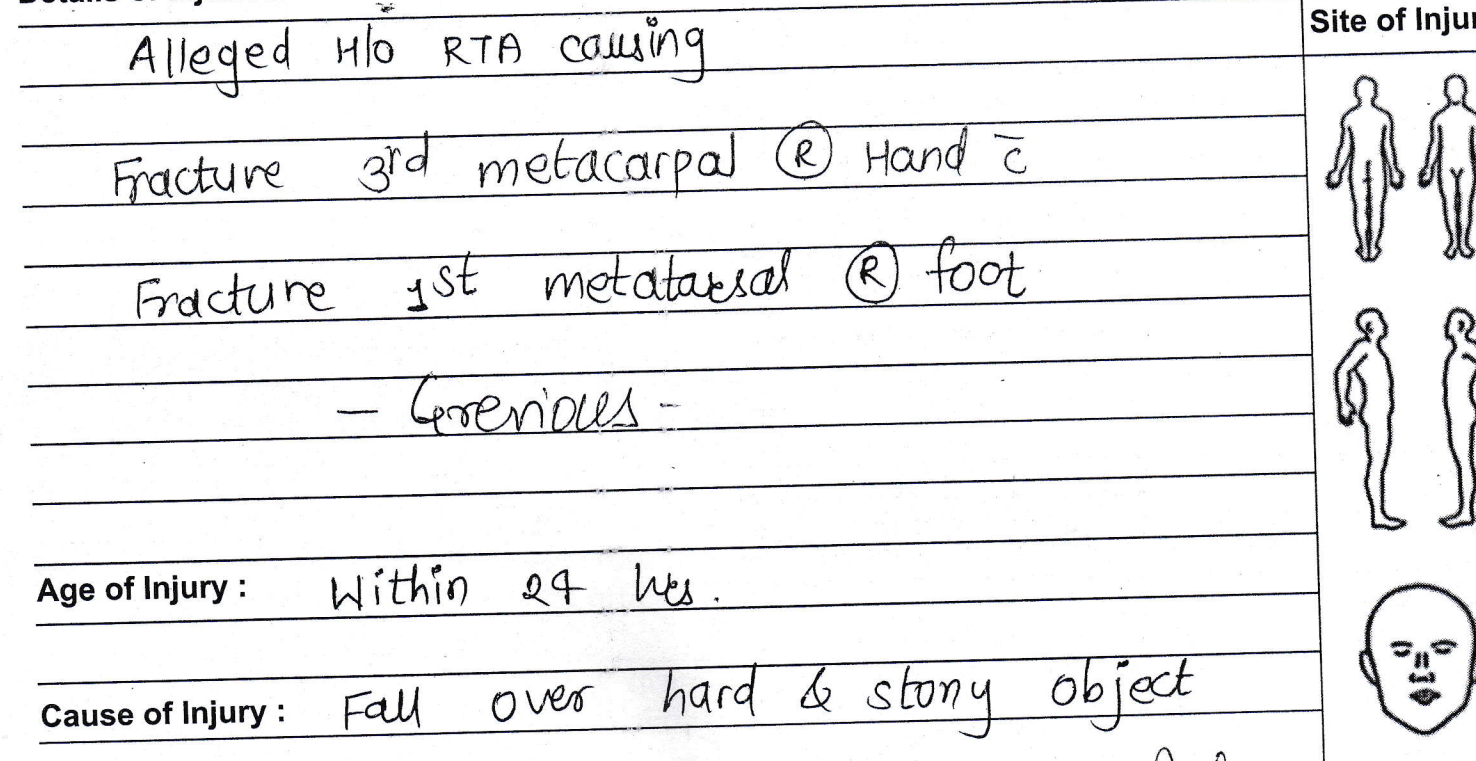 Site of Injur
Alleged H/o RTA causing
Fracture 3rd metacarpal Ⓡ Hand c̄
Fracture 1st metatarsal Ⓡ foot
- Grevious -
Age of Injury : Within 24 hrs.
Cause of Injury : Fall over hard & stony object